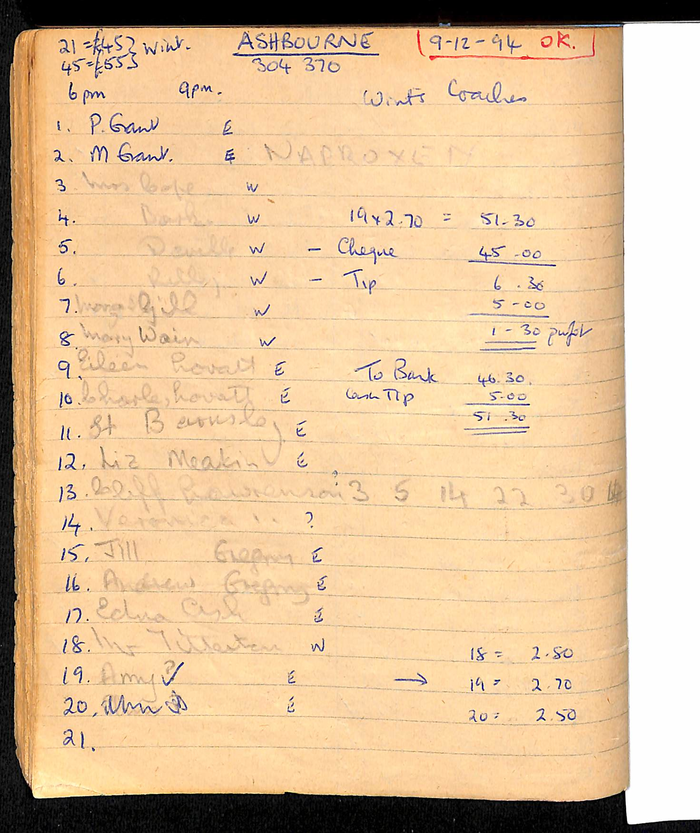 21 = £45 } Wint.
45 = £55 }
ASHBOURNE
304 370
9-12-94 OK.
6pm 9pm. Wints Coaches
1. P. Grant E
2. M Grant. E NAPROXEN
3 Mrs Cope W
4. W 19 x 2.70 = 51.30
5. W - Cheque 45.00
6. W - Tip 6.30
7. Gill W 5-00
8. Mary Wain W 1-30 profit
9. Eileen Lovatt E To Bank 46.30.
10. Charles Lovatt E Cash Tip 5.00
51.30
11. E
12. Liz Meakin E
13. Cliff Lawrenson ? 3 5 14 22 30
14. Veronica ?
15. Jill Gregory E
16. Andrew Gregory E
17. Edna Cash E
18. Mr W 18 = 2.80
19. Amy E → 19 = 2.70
20. E 20: 2.50
21.